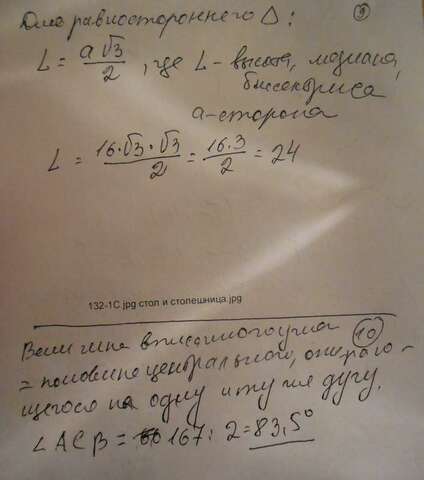 Для равностороннего Δ: ⑨
L = a√3/2, где L - высота, медиана,
биссектриса
a - сторона
L = 16·√3·√3/2 = 16·3/2 = 24
132-1C.jpg стол и столешница.jpg
Величина вписанного угла ⑩
= половине центрального, опираю-
щегося на одну и ту же дугу.
∠ACB = 167:2=83,5°